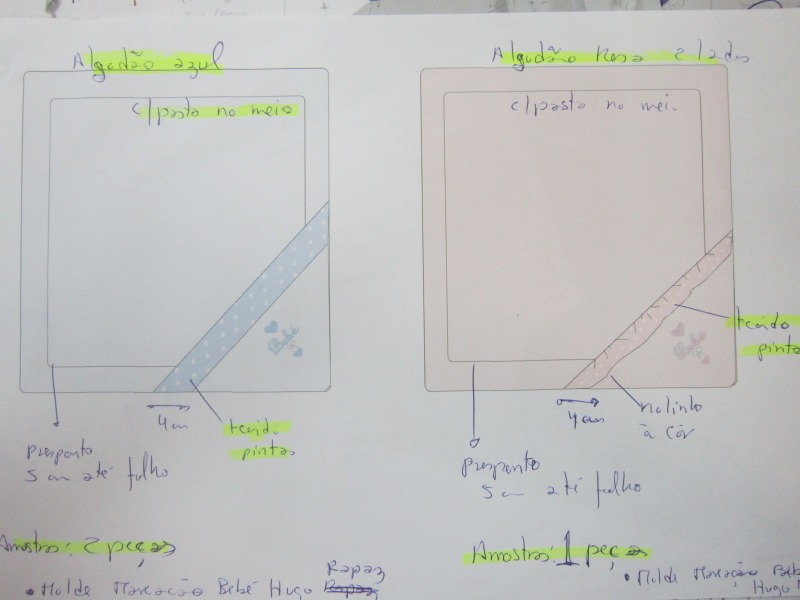 Algodão azul
c/pasta no meio
Bebé
4cm
tecido
pintas
pesponto
5 cm até folho
Amostras: 2 peças
• Molde Marcação Bebé Hugo Rapaz
Algodão Rosa 2 lados
c/pasta no mei.
Bebé
tecido
pintas
4cm
rolinho
à côr
pesponto
5 cm até folho
Amostras: 1 peças
• Molde Marcação Beb
Hugo